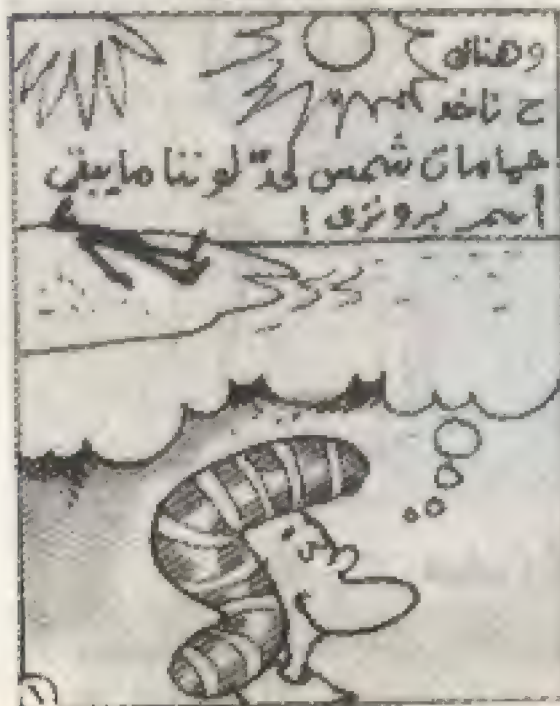 وهناك
ح ناخد
حمامات شمس لمدّ لوننا ما يبقى
أسمر برونزى !